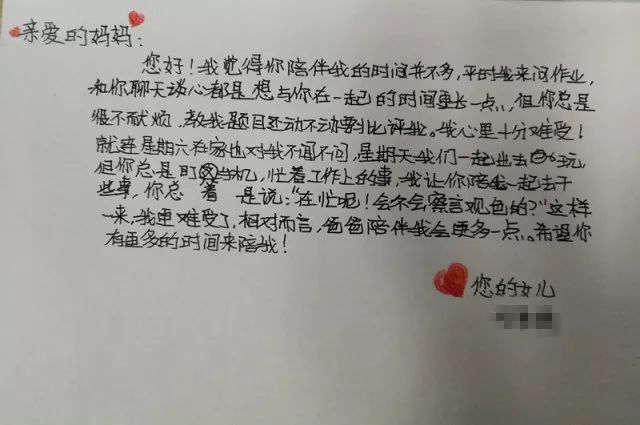 亲爱的妈妈：
您好！我觉得你陪伴我的时间并不多，平时我来问作业，
和你聊天谈心都是想与你在一起的时间更长一点，但你总是
很不耐烦，教我题目还动不动要批评我。我心里十分难受！
就连星期六在家也对我不闻不问，星期天我们一起出去玩
但你总是盯着手机，忙着工作上的事，我让你陪我一起去干
些事，你总着是说："在忙呢！会不会察言观色的？"这样
一来，我更难受了，相对而言，爸爸陪伴我会更多一点。希望你
有更多的时间来陪我！
您的女儿